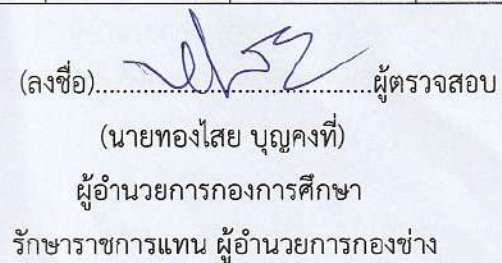 (ลงชื่อ)......................................ผู้ตรวจสอบ
(นายทองไสย บุญคงที่)
ผู้อำนวยการกองการศึกษา
รักษาราชการแทน ผู้อำนวยการกองช่าง